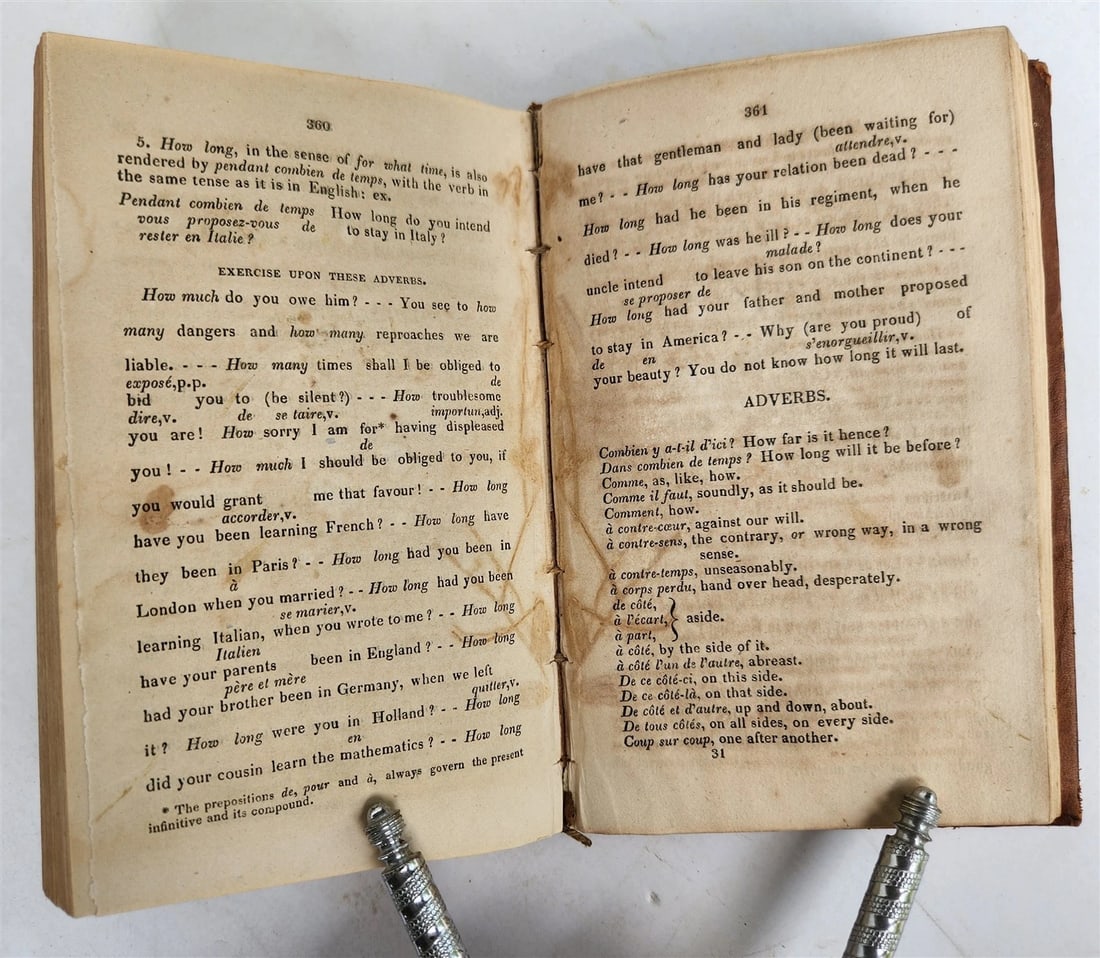 360
5. How long, in the sense of for what time, is also
rendered by pendant combien de temps, with the verb in
the same tense as it is in English; ex.
Pendant combien de temps How long do you intend
vous proposez-vous de to stay in Italy?
rester en Italie?
EXERCISE UPON THESE ADVERBS.
How much do you owe him? - - - You see to how
many dangers and how many reproaches we are
liable. - - - - How many times shall I be obliged to
exposé,p.p. de
bid you to (be silent?) - - - How troublesome
dire,v. de se taire,v. importun,adj.
you are! How sorry I am for* having displeased
de
you! - - How much I should be obliged to you, if
you would grant me that favour! - - How long
accorder,v.
have you been learning French? - - How long have
they been in Paris? - - How long had you been in
à
London when you married? - - How long had you been
se marier,v.
learning Italian, when you wrote to me? - - How long
Italien
have your parents been in England? - - How long
père et mère
had your brother been in Germany, when we left
quitter,v.
it? How long were you in Holland? - - How long
en
did your cousin learn the mathematics? - - How long
* The prepositions de, pour and à, always govern the present
infinitive and its compound.
361
have that gentleman and lady (been waiting for)
attendre,v.
me? - - How long has your relation been dead? - - -
How long had he been in his regiment, when he
died? - - How long was he ill? - - How long does your
malade?
uncle intend to leave his son on the continent? - - -
se proposer de
How long had your father and mother proposed
to stay in America? - - Why (are you proud) of
de en s'enorgueillir,v.
your beauty? You do not know how long it will last.
ADVERBS.
Combien y a-t-il d'ici? How far is it hence?
Dans combien de temps? How long will it be before?
Comme, as, like, how.
Comme il faut, soundly, as it should be.
Comment, how.
à contre-cœur, against our will.
à contre-sens, the contrary, or wrong way, in a wrong
sense.
à contre-temps, unseasonably.
à corps perdu, hand over head, desperately.
de côté,
à l'écart, } aside.
à part,
à côté, by the side of it.
à côté l'un de l'autre, abreast.
De ce côté-ci, on this side.
De ce côté-là, on that side.
De côté et d'autre, up and down, about.
De tous côtés, on all sides, on every side.
Coup sur coup, one after another.
31